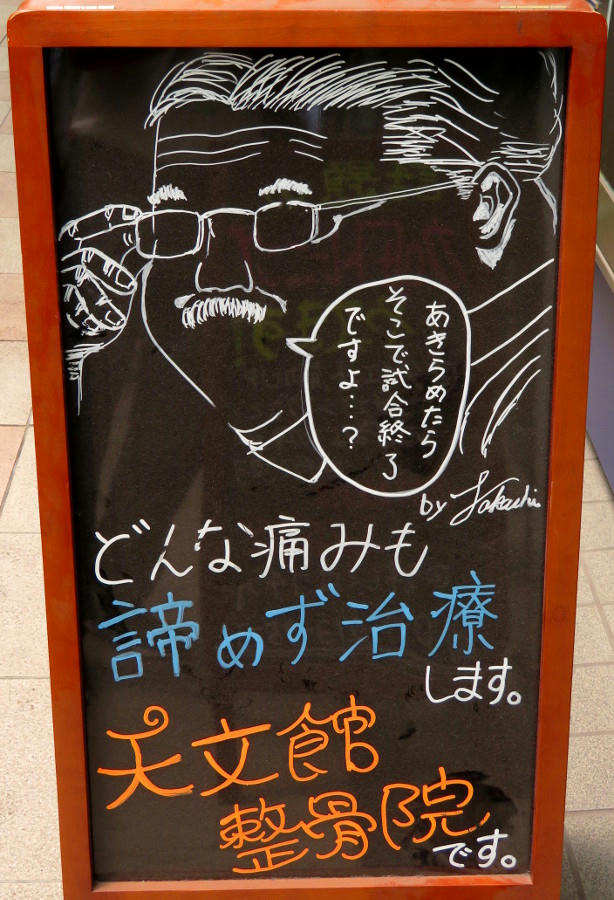 あきらめたら
そこで試合終了
ですよ…?
by Takashi
どんな痛みも
諦めず治療
します。
天文館
整骨院
です。